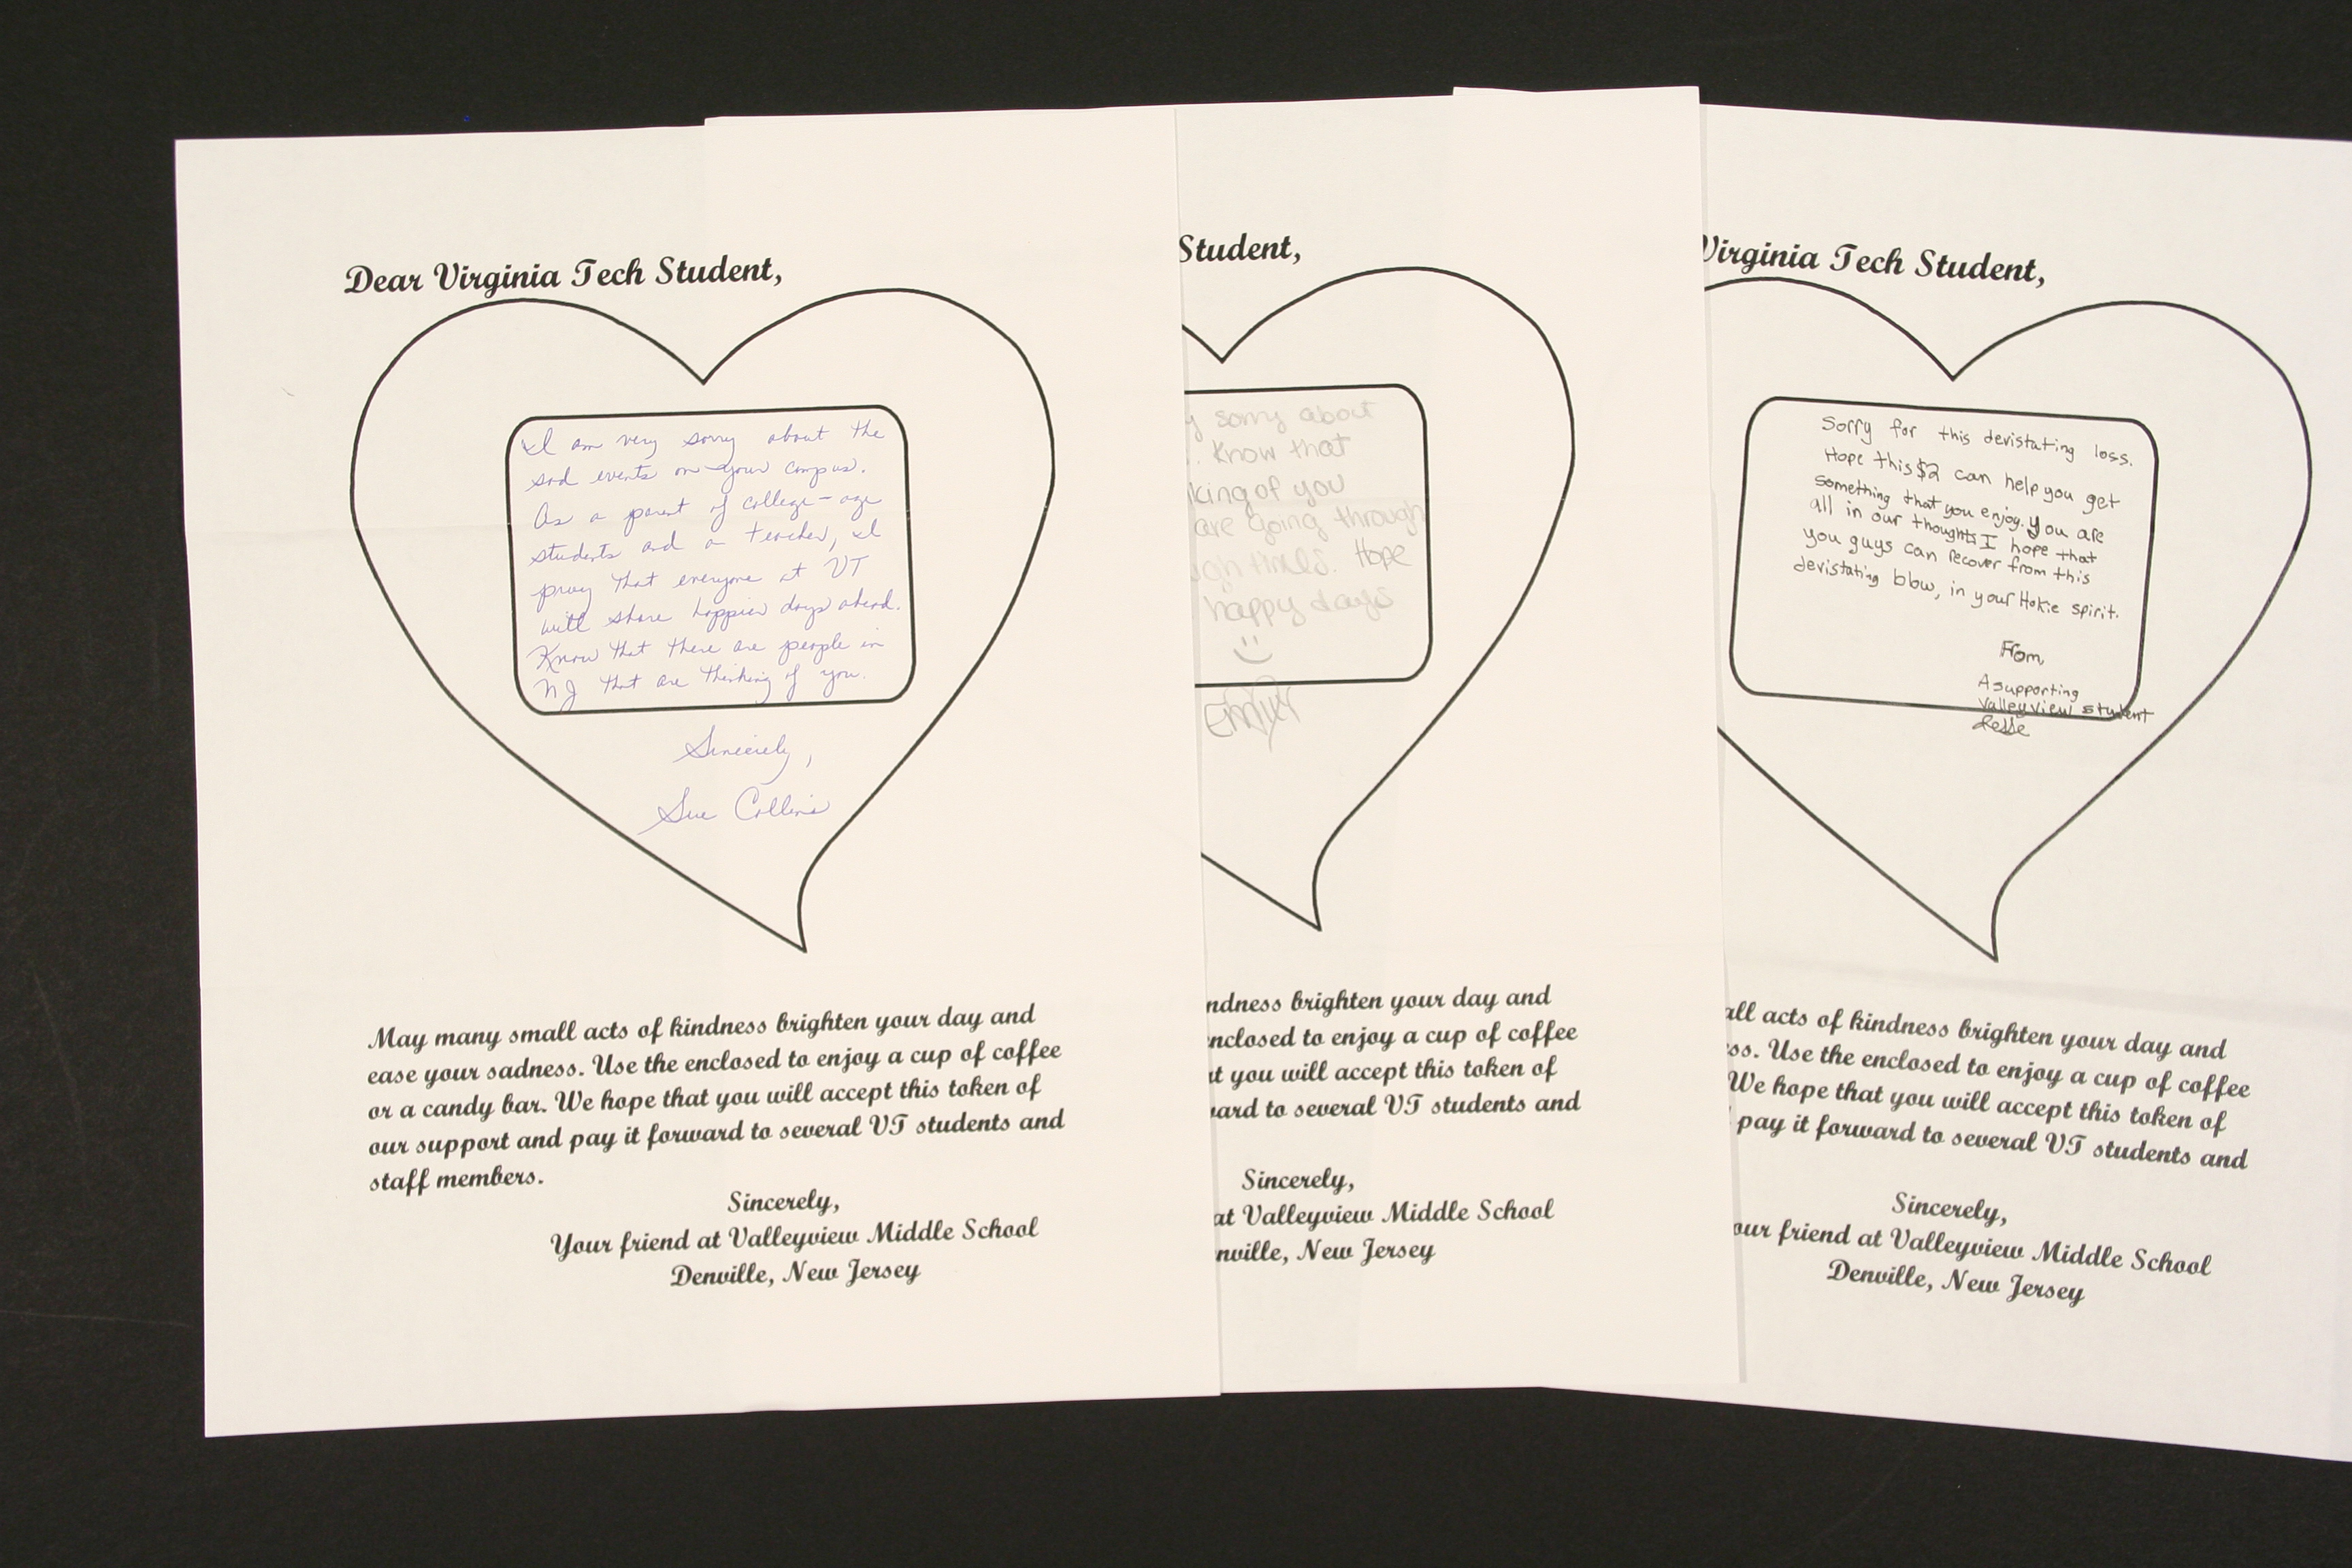 Dear Virginia Tech Student,
I am very sorry about the
sad events on your campus.
As a parent of college-age
students and a teacher, I
pray that everyone at VT
will share happier days ahead.
Know that there are people in
NJ that are thinking of you.
Sincerely,
Sue Collins
May many small acts of kindness brighten your day and
ease your sadness. Use the enclosed to enjoy a cup of coffee
or a candy bar. We hope that you will accept this token of
our support and pay it forward to several VT students and
staff members.
Sincerely,
Your friend at Valleyview Middle School
Denville, New Jersey
Student,
y sorry about
. Know that
king of you
are going through
gh times. Hope
happy days
Emily
ndness brighten your day and
enclosed to enjoy a cup of coffee
t you will accept this token of
ward to several VT students and
Sincerely,
at Valleyview Middle School
nville, New Jersey
Virginia Tech Student,
Sorry for this devistating loss.
Hope this $2 can help you get
something that you enjoy. You are
all in our thoughts I hope that
you guys can recover from this
devistating blow, in your Hokie spirit.
From,
A supporting
Valleyview student
all acts of kindness brighten your day and
ss. Use the enclosed to enjoy a cup of coffee
We hope that you will accept this token of
pay it forward to several VT students and
Sincerely,
our friend at Valleyview Middle School
Denville, New Jersey